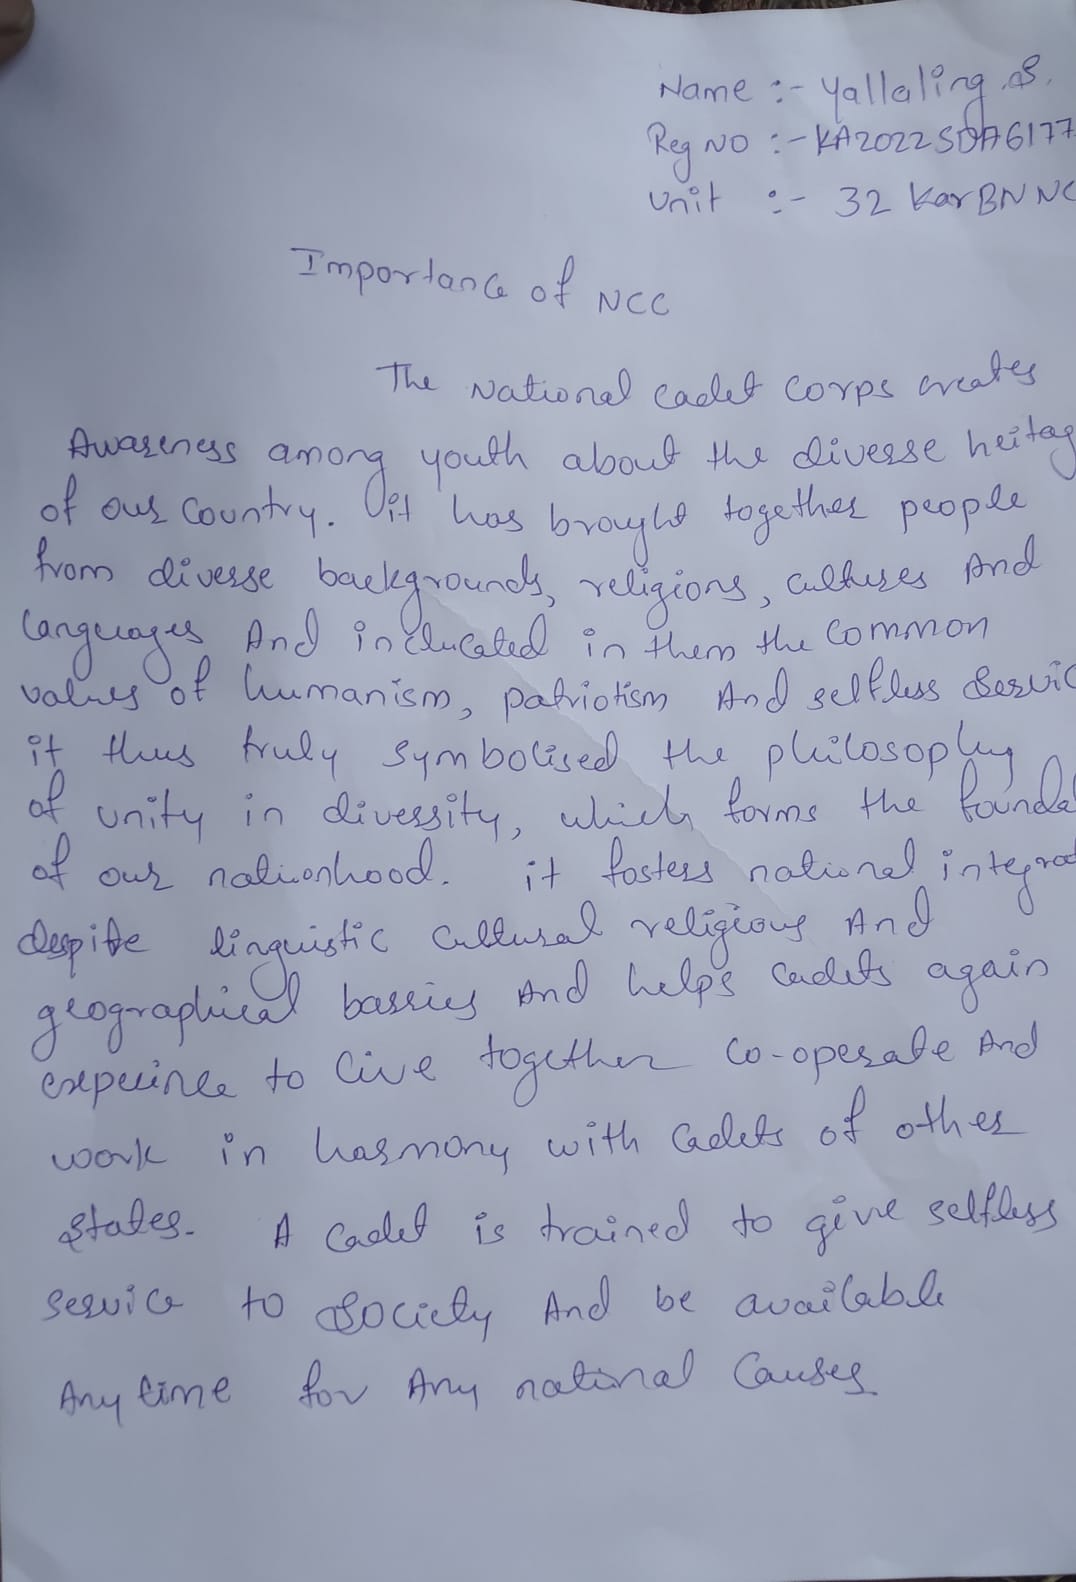 Name :- Yallaling .S.
Reg NO :- KA2022SDA6177
Unit :- 32 Kar BN NC
Importance of NCC
The National Cadet Corps creates
Awareness among youth about the diverse heitag
of our Country. it has brought together people
from diverse backgrounds, religions, cultures And
languages And inclucated in them the Common
values of humanism, patriotism And selfless Servic
it thus truly symbolised the philosophy
of unity in diversity, which forms the founda
of our nationhood. it fosters national integrat
despite linguistic Cultural religious And
geographical barries And helps Cadets again
experince to live together Co-operate And
work in harmony with Cadets of other
states. A Cadet is trained to give selfless
service to Society And be available
Any time for Any national Causes